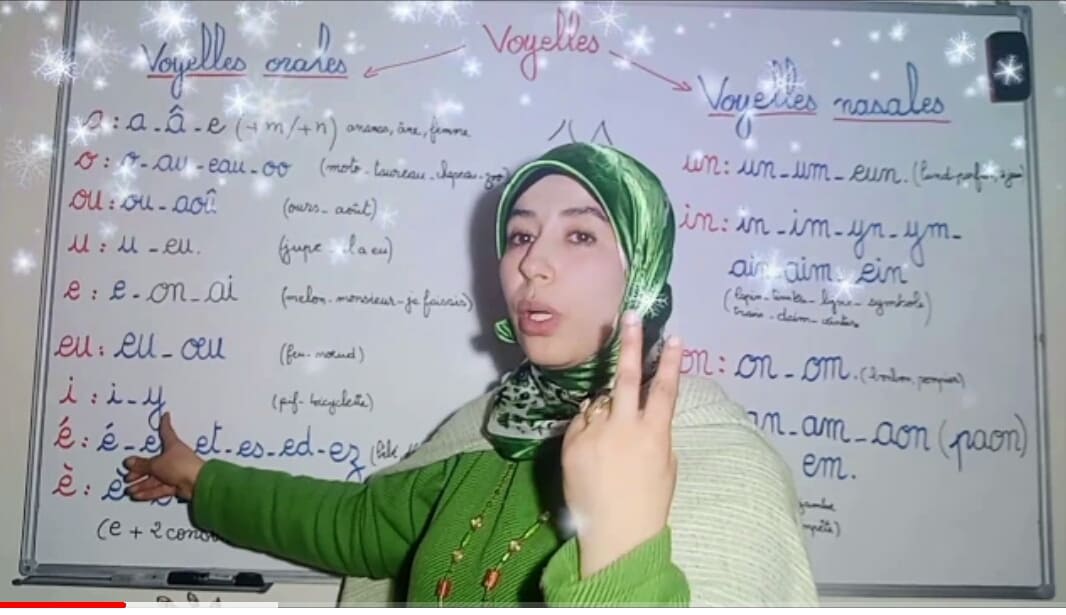 Voyelles
Voyelles orales
a : a - â - e (+m/+n) ananas, âne, femme
o : o - au - eau - oo (moto - taureau - chapeau - zoo
ou : ou - aoû (ours - août)
u : u - eu. (jupe - la eu)
e : e - on - ai (melon - monsieur - je faisais)
eu : eu - œu (feu - nœud)
i : i - y (pif - bicyclette)
é : é - et - es - ed - ez
è :
(e + 2 conso
Voyelles nasales
un : un - um - eun. (lundi - parfum, à jeun)
in : in - im - yn - ym -
ain - aim - ein
(lapin - timbre - lynx - symbole)
train - daim - ceinture
on : on - om. (bonbon, pompier)
an - am - aon (paon)
em.